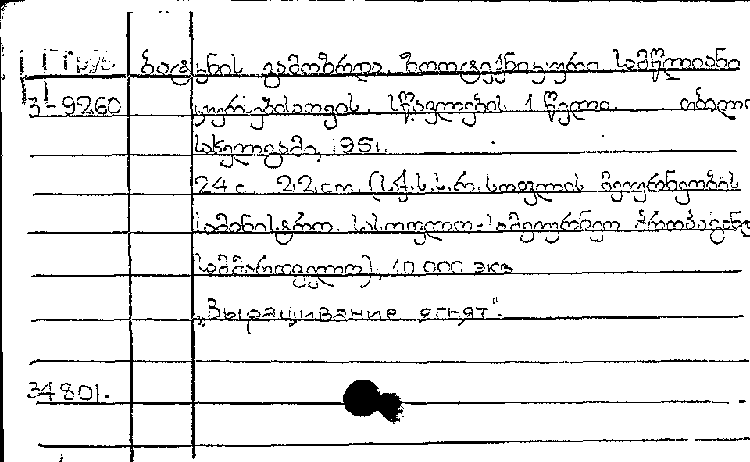 ბატკნის გამოზრდა. ზოოტექნიკური სამწლიანი
3-9260 კურსებისათვის. სწავლების 1 წელი. თბილ
სახელგამი, 1951.
24 с. 22 cm. (საქ.ს.ს.რ. სოფლის მეურნეობის
სამინისტრო. სასოფლო-სამეურნეო პროპაგანდ
სამმართველო), 10 000 экз
„Выращивание ягнят“.
34801.